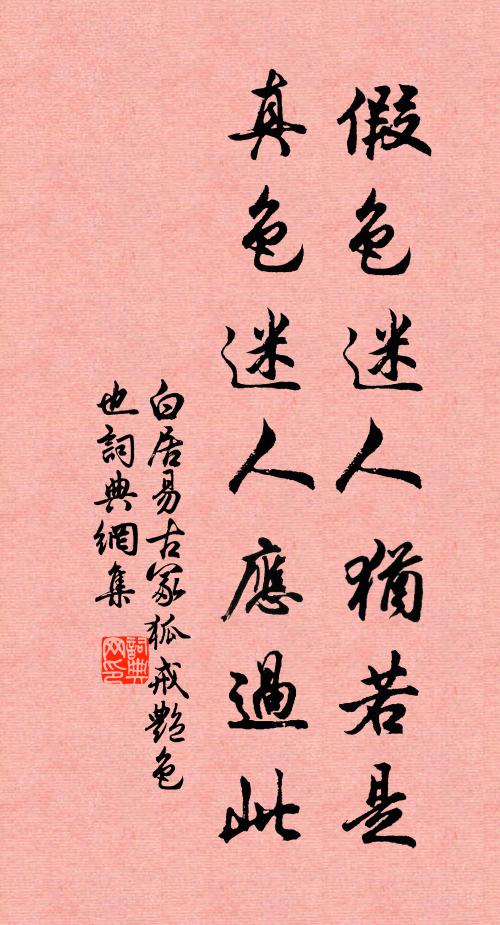 假色迷人猶若是
真色迷人應過此
白居易古冢狐戒艷色
也詞典網集
詞典
网印